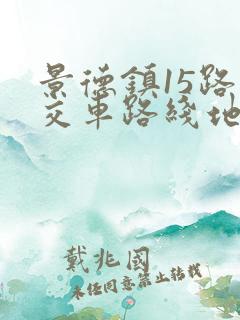 景德鎮15路
交車路綫地
戴兆國
未任同意禁止转载